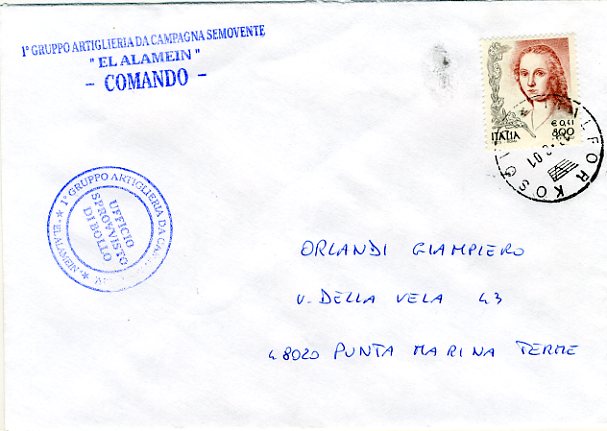 1° GRUPPO ARTIGLIERIA DA CAMPAGNA SEMOVENTE
"EL ALAMEIN"
- COMANDO -
€ 0,41
800
ITALIA
ILFOR KOS
01
1° GRUPPO ARTIGLIERIA DA
"EL ALAMEIN"
UFFICIO
SPROVVISTO
DI BOLLO
ORLANDI GIAMPIERO
V. DELLA VELA 43
48020 PUNTA MARINA TERME